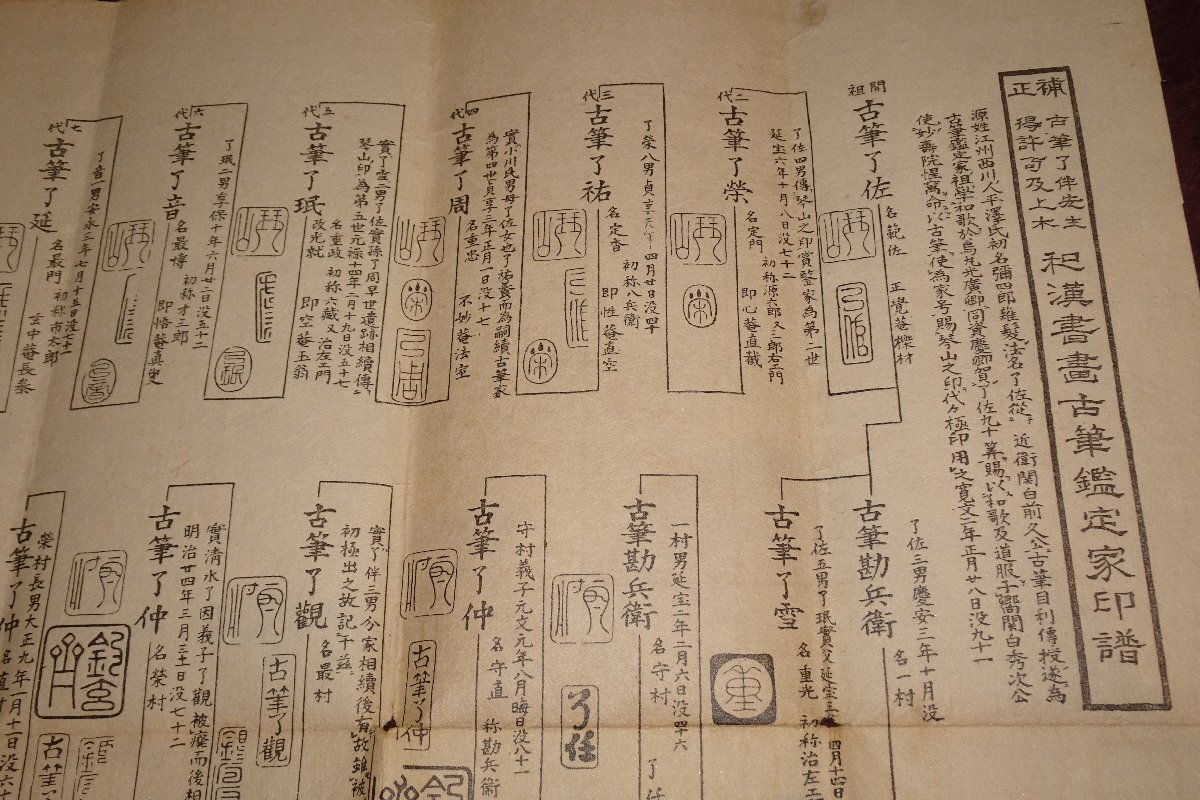 補正
古筆了伴先生
得許可及上木
和漢書畫古筆鑑定家印譜
源姓江州西川人平澤氏初名彌四郎薙髮法名了佐從近衛関白前久公古筆目利傳授遂為
古筆鑑定家祖學和歌於烏丸光廣卿同資慶卿賀了佐九十算賜以和歌及道服子嚮関白秀次公
使妙壽院惺窩命以古筆使為家号賜琴山之印代々極印用之寛文二年正月廿八日没九十一
開祖
古筆了佐
名範佐
正覺菴櫟材
了佐四男傳琴山之印賞鑒家為第二世
延宝六年十月八日没七十二
二代
古筆了榮
名定門
初称源六郎又三郎右エ門
即心菴直截
了榮八男貞享元年四月廿日没四十
三代
古筆了祐
名定音
初称八兵衛
即性菴直空
實小川氏男母了佐女也了祐養而為嗣續古筆家
為第四世貞享三年正月一日没十七
四代
古筆了周
名重忠
不妙菴法室
實了雪二男了佐實孫了周早世遺跡相續傳
琴山印為第五世元禄十四年二月十九日没五十七
五代
古筆了珉
名重政
初称六蔵又治左エ門
改光就
即空菴玉翁
了珉二男享保十年六月廿二日没五十二
六代
古筆了音
名最博
初称才三郎
即悟菴真叟
了音二男安永三年七月十五日没七十一
七代
古筆了延
名最門
初称市太郎
空中菴長泰
了佐二男慶安三年十月没
古筆勘兵衛
名一村
了佐五男了珉實父延宝三
四月十四日
古筆了雪
名重光
初称治左エ
一村男延宝二年二月六日没四十六
古筆勘兵衛
名守村
了任
了任
守村義子元文元年八月晦日没八十一
古筆了仲
名守直
称勘兵衛
古筆了仲
實了伴三男分家相續後有故雖被
初極出之故記于茲
古筆了觀
名最村
古筆了觀
實清水了因義子了觀被廃而後相
明治廿四年三月三十日没七十二
古筆了仲
名榮村
榮村長男大正九年一月十一日没六十
古筆了仲
名直村